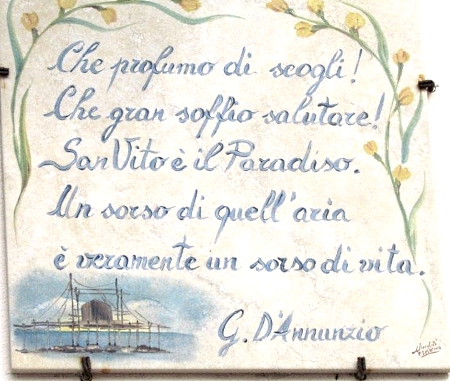 Che profumo di scogli!
Che gran soffio salutare!
San Vito è il Paradiso.
Un sorso di quell'aria
è veramente un sorso di vita.
G. D'Annunzio